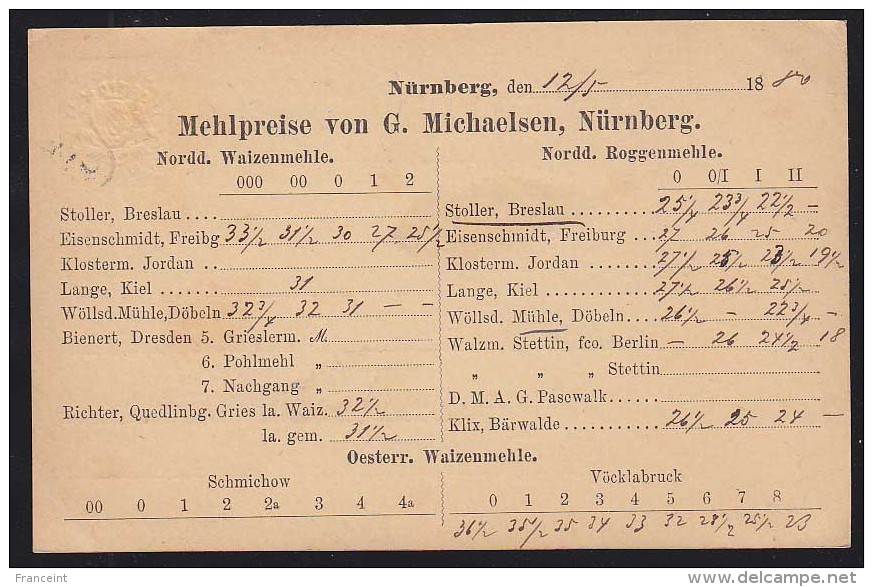 Nürnberg, den 12/5 1880
Mehlpreise von G. Michaelsen, Nürnberg.
Nordd. Waizenmehle.
000 00 0 1 2
Stoller, Breslau ....
Eisenschmidt, Freibg 33 1/2 31 1/2 30 27 25 1/2
Klosterm. Jordan ..
Lange, Kiel 31
Wöllsd.Mühle,Döbeln 32 3/4 32 31 — —
Bienert, Dresden 5. Grieslerm. M.
6. Pohlmehl „
7. Nachgang „
Richter, Quedlinbg. Gries Ia. Waiz. 32 1/2
Ia. gem. 31 1/2
Nordd. Roggenmehle.
0 0/I I II
Stoller, Breslau 25 1/4 23 3/4 22 1/2 —
Eisenschmidt, Freiburg ... 27 26 25 20
Klosterm. Jordan 27 1/2 25 1/2 23 1/2 19 1/2
Lange, Kiel 27 1/2 26 1/2 25 1/2
Wöllsd. Mühle, Döbeln 26 1/2 — 22 3/4 —
Walzm. Stettin, fco. Berlin — 26 24 1/2 18
„ „ „ Stettin
D. M. A. G. Pasewalk
Klix, Bärwalde 26 1/2 25 24 —
Oesterr. Waizenmehle.
Schmichow
00 0 1 2 2a 3 4 4a
Vöcklabruck
0 1 2 3 4 5 6 7 8
36 1/2 35 1/2 35 34 33 32 28 1/2 25 1/2 23
Franceint
delcampe.net